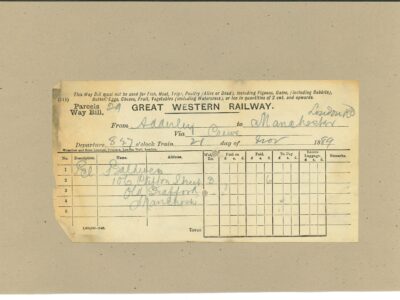 This Way Bill must not be used for Fish, Meat, Tripe, Poultry (Alive or Dead), including Pigeons, Game, (including Rabbits),
Butter, Eggs, Cheese, Fruit, Vegetables (including Watercress), or Ice in quantities of 2 cwt. and upwards.
Parcels
Way Bill.
GREAT WESTERN RAILWAY.
From Adderley to Manchester London Rd
Via Crewe
Departure, 8.57 o'clock Train. 21 day of Nov 1889
No. Description. Name. Address. Weight. Paid on. Paid. To Pay. Excess Luggage. Remarks.
1
2 106 Clifton Street 3 6
3 Old Trafford
4 Manchester
5
Total